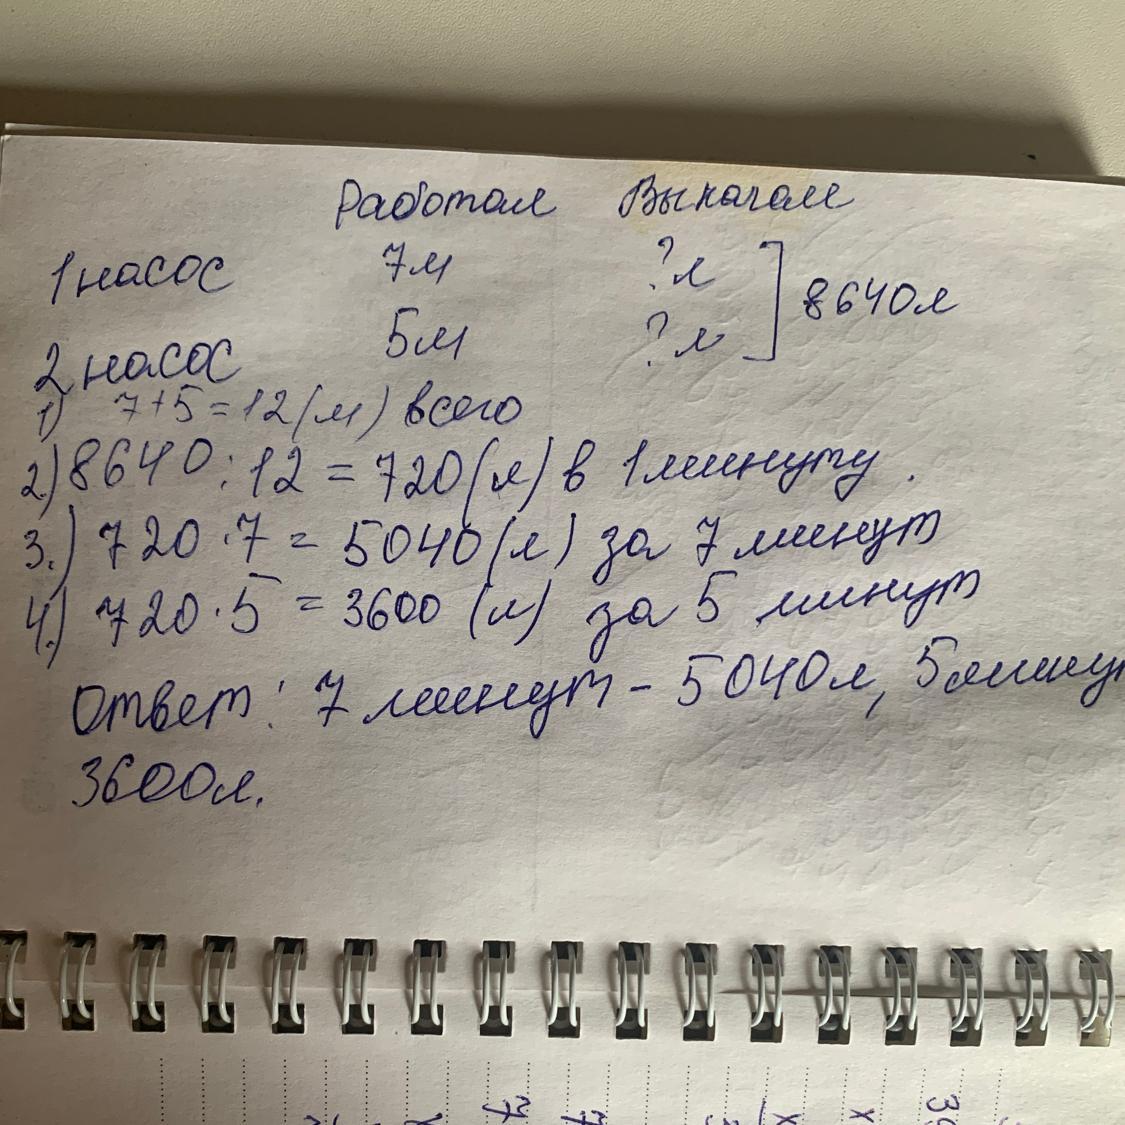 Работал Выкачал
1 насос 7м ?л
8640л
2 насос 5м ?л
1) 7+5=12(м) всего
2.) 8640:12=720(л) в 1 минуту.
3.) 720·7=5040(л) за 7 минут
4.) 720·5=3600 (л) за 5 минут
Ответ: 7 минут - 5040л, 5 мину
3600л.